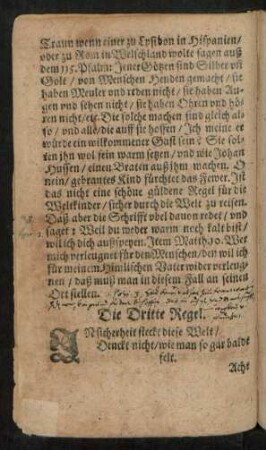 Traun wenn einer zu Lysibon in Hispanien/
oder zu Rom in Welschland wolte sagen auß
dem 115. Psalm: Jener Götzen sind Silber vñ
Golt / von Menschen Henden gemacht / sie
haben Meuler vnd reden nicht / sie haben Au-
gen vnd sehen nicht / sie haben Ohren vnd hö-
ren nicht / etc. Die solche machen sind gleich al-
so / vnd alle / die auff sie hoffen / Ich meine er
würde ein willkommener Gast sein: Sie sol-
ten ihn wol fein warm setzen / vnd wie Johan
Hussen / einen Braten auß ihm machen. O
nein / gebrantes Kind fürchtet das Fewer. Ist
das nicht eine schöne güldene Regel für die
Weltkinder / sicher durch die Welt zu reisen.
Daß aber die Schrifft vbel davon redet / vnd
saget: Weil du weder warm noch kalt bist /
wil ich dich außspeyen. Item Matth. 10. Wer
mich verleugnet für den Menschen / den wil ich
für meinem Himlischen Vater wider verleug-
nen / daß muß man in diesem Fall an seinen
Ort stellen.
Die Dritte Regel.
IN sicherheit steckt diese Welt /
Denckt nicht / wie man so gar baldt
felt.
Acht